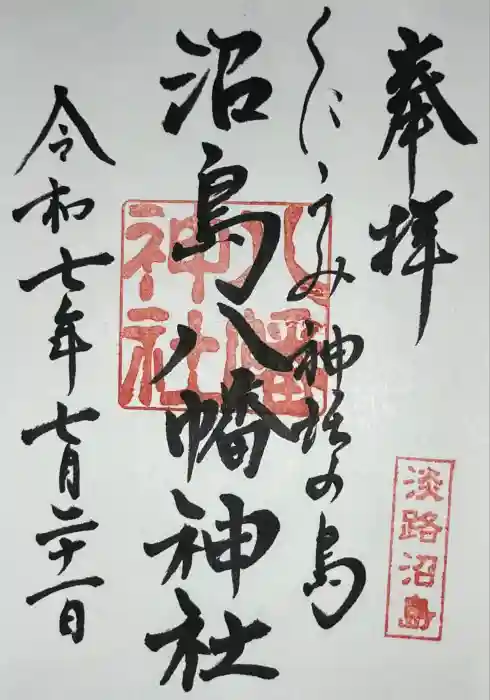 奉拝
淡路沼島
くにうみ神話の島
沼島八幡神社
八幡
神社
令和七年七月二十一日